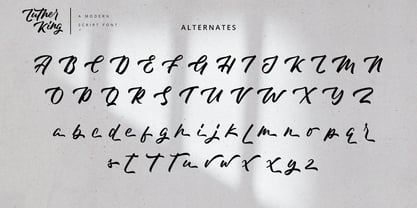 Luther
King
A MODERN
SCRIPT FONT
ALTERNATES
A B C D E F G H I J K L M N
O P Q R S T U V W X Y Z
a b c d e f g h i j k L m n o p q r
s t T T u v w x X y z